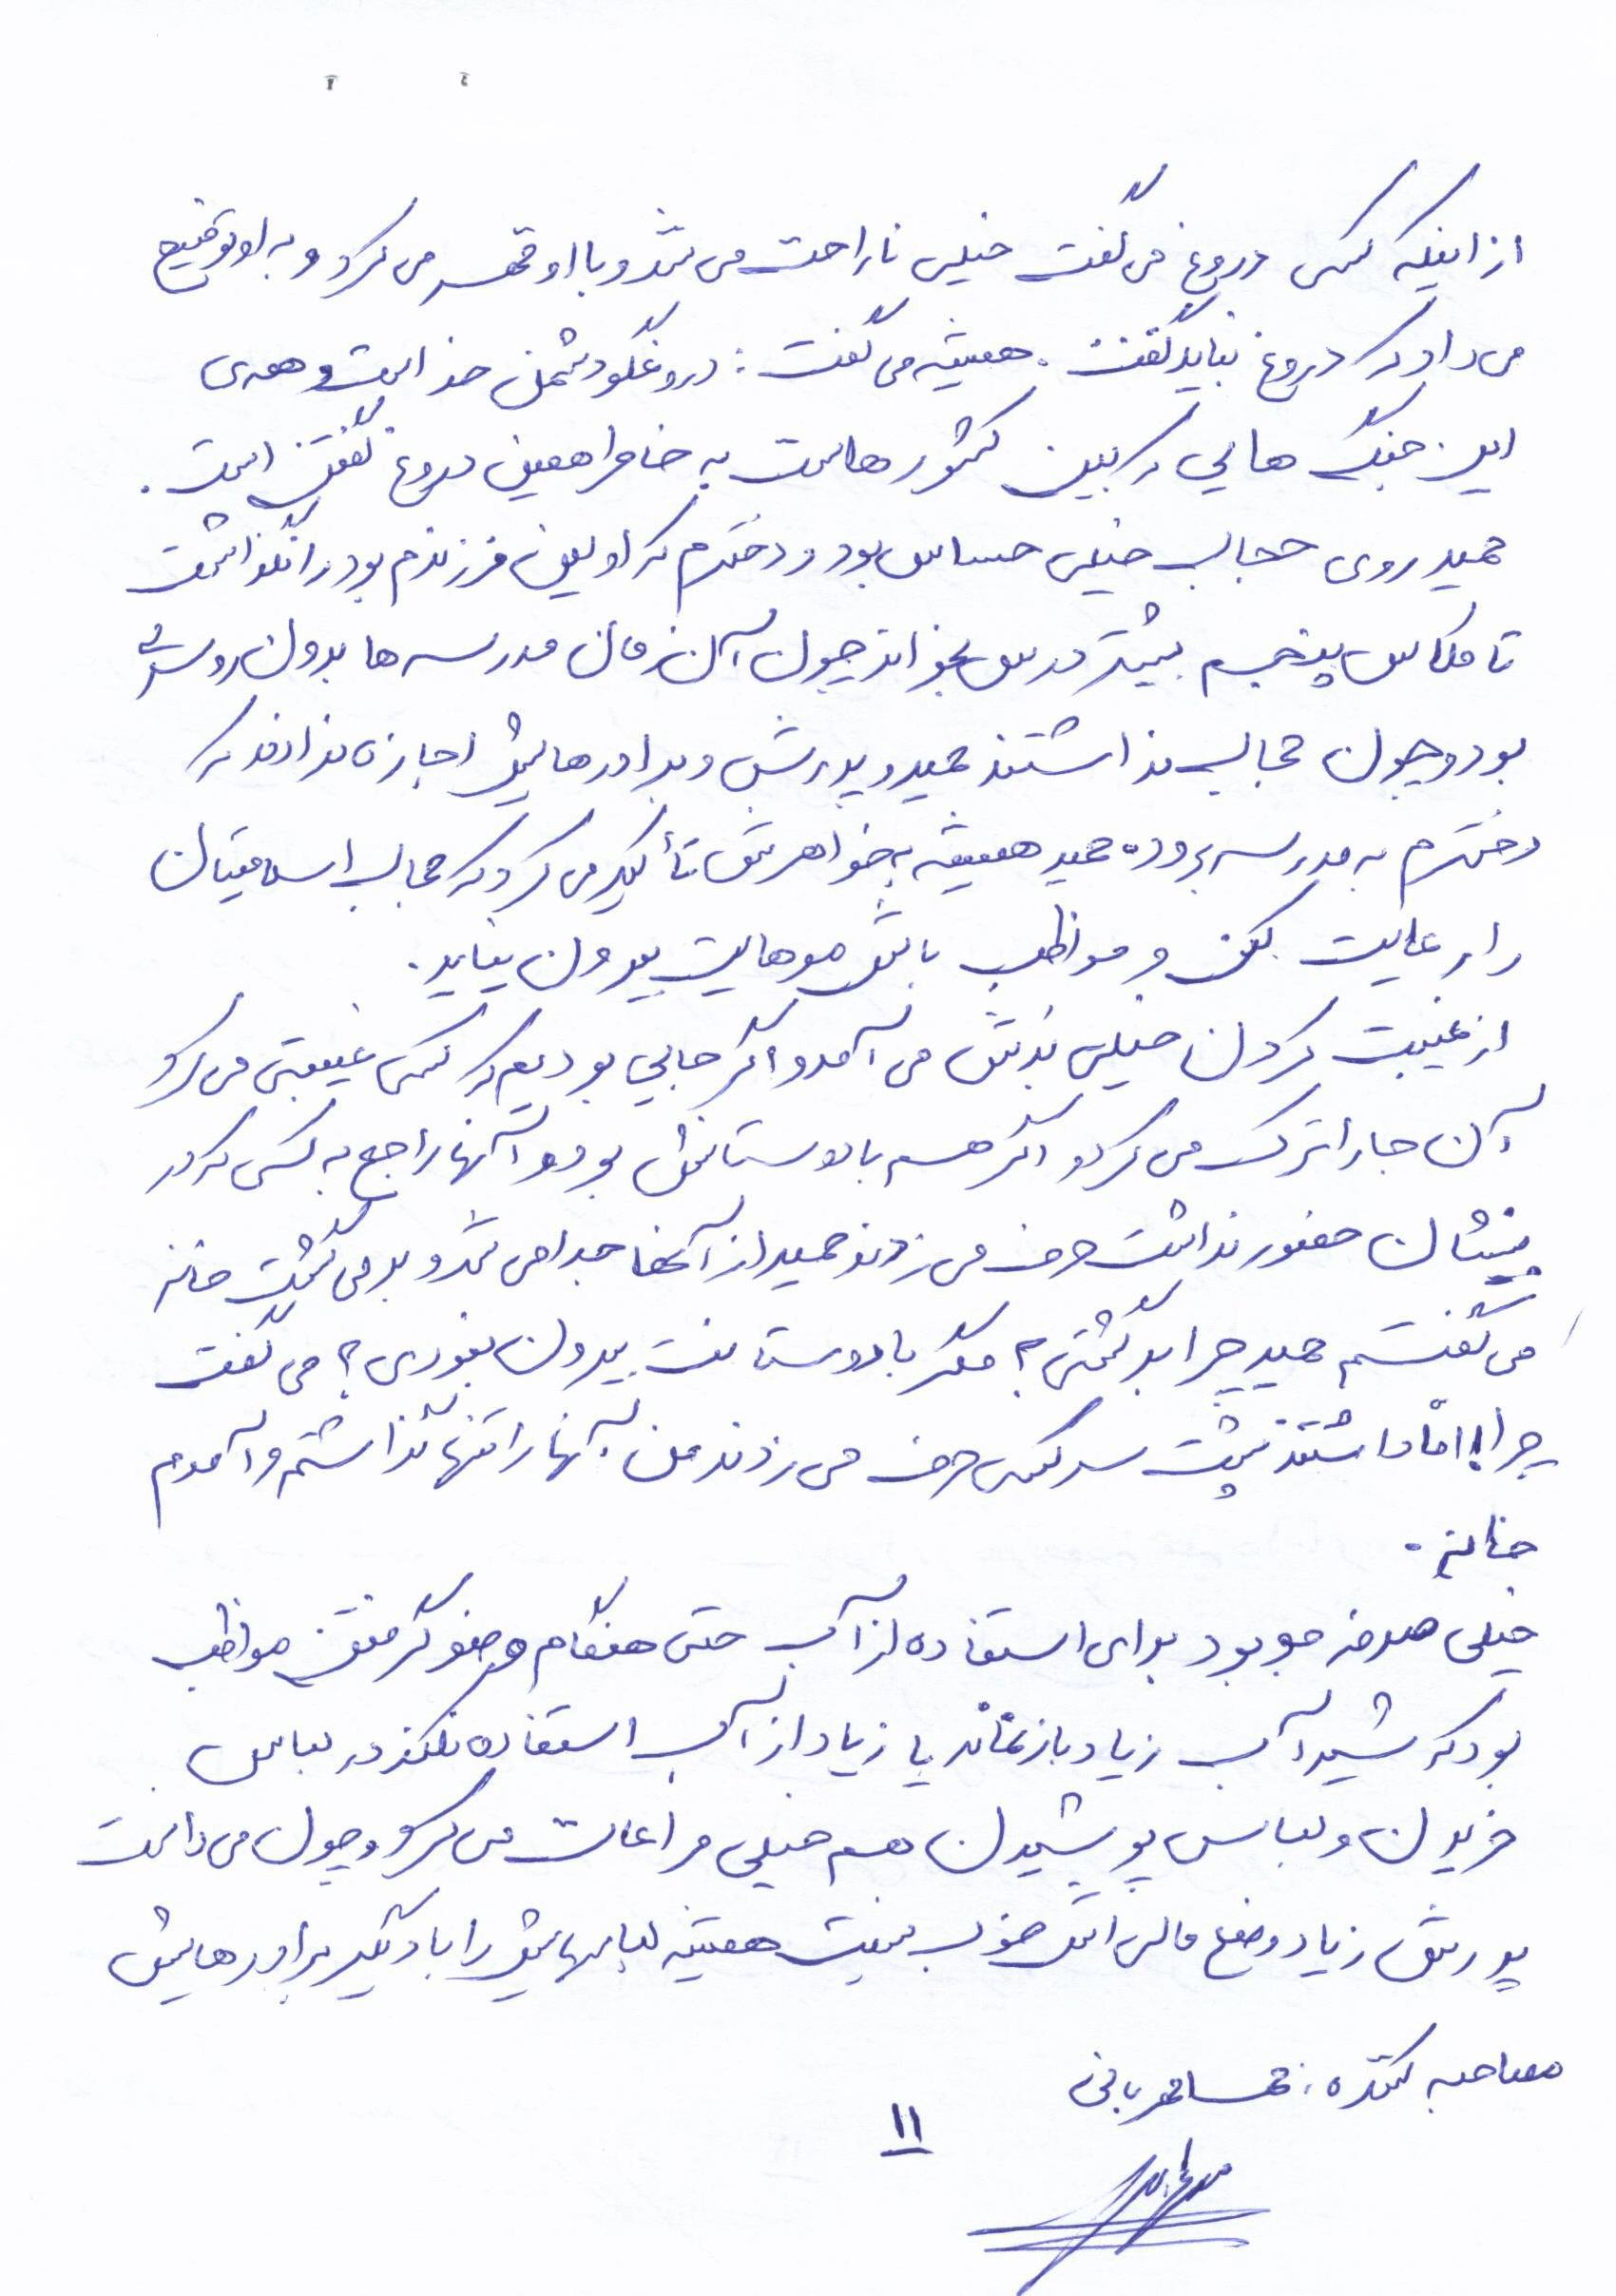 از اینکه کسی دروغ می گفت خیلی ناراحت می شد و با او قهر می کرد و به او توضیح
می داد که دروغ نباید گفت. همیشه می گفت: دروغگو دشمن خداست و همه ی
این جنگ هایی که بین کشورهاست به خاطر همین دروغ گفتن است.
حمید روی حجاب خیلی حساس بود و دخترم که اولین فرزندم بود را نگذاشت
تا کلاس پنجم بیشتر درس بخواند چون آن زمان مدرسه ها بدون روسری
بود و چون حجاب نداشتند حمید و پدرش و برادرهایش اجازه ندادند که
دخترم به مدرسه برود. حمید همیشه به خواهرش تأکید می کرد که حجاب اسلامیتان
را رعایت کن و مواظب باش موهایت بیرون نیاید.
از غیبت کردن خیلی بدش می آمد و اگر جایی بودیم که کسی غیبتی می کرد
آن جا را ترک می کرد و اگر هم با دوستانش بود و آنها راجع به کسی که در
پیششان حضور نداشت حرف می زدند حمید از آنها جدا می شد و بر می گشت خانه
می گفتم حمید چرا برگشتی؟ مگر با دوستانت بیرون نبودی؟ می گفت
چرا! امّا داشتند پشت سر کسی حرف می زدند من آنها را تنها گذاشتم و آمدم
خانه.
خیلی صرفه جو بود برای استفاده از آب حتی هنگام وضو گرفتن مواظب
بود که شیر آب زیاد باز نماند یا زیاد از آب استفاده نکند در لباس
خریدن و لباس پوشیدن هم خیلی مراعات می کرد و چون می دانست
پدرش زیاد وضع مالی اش خوب نیست همیشه لباسهایش را با دیگر برادرهایش
مصاحبه کننده:
۱۱